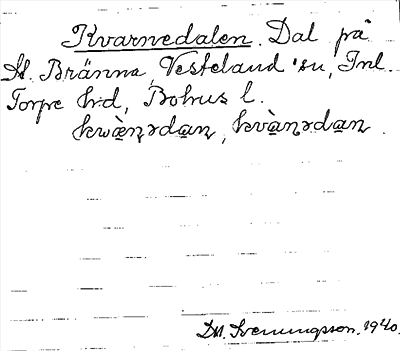 Kvarnedalen. Dal på
St. Bränna, Vesteland 'sn, Inl.
Torpe h:d, Bohus l.
kwæ̀ṇədaṇ, kvàṇədaṇ.
D. Svenungsson. 1940.